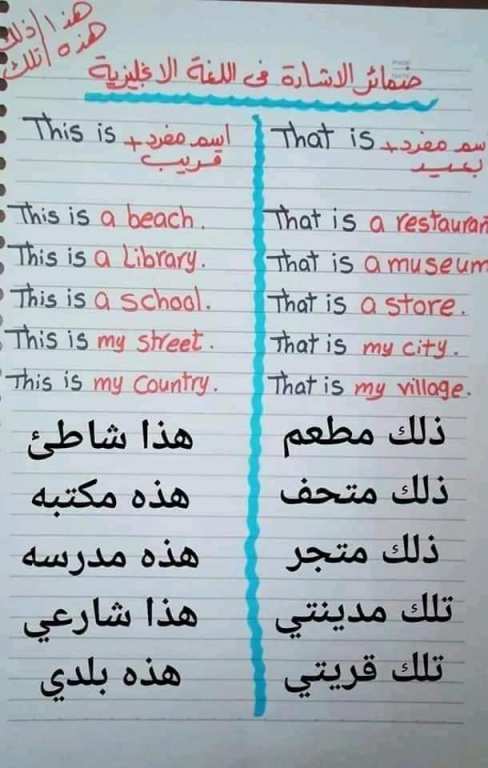 هذا / ذلك
هذه / تلك
ضمائر الاشارة فى اللغة الانجليزية
This is + اسم مفرد
قريب
This is a beach.
This is a Library.
This is a school.
This is my street.
This is my Country.
هذا شاطئ
هذه مكتبه
هذه مدرسه
هذا شارعي
هذه بلدي
That is + اسم مفرد
بعيد
That is a restauran
That is a museum
That is a store.
That is my city.
That is my village.
ذلك مطعم
ذلك متحف
ذلك متجر
تلك مدينتي
تلك قريتي